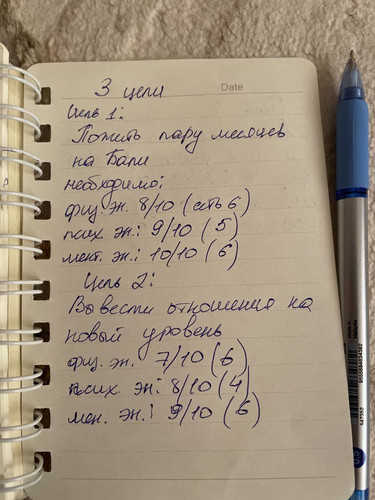 3 цели
Date
Цель 1:
Пожить пару месяцев
на Бали
необходимо:
физ. эн. 8/10 (есть 6)
псих. эн.: 9/10 (5)
мент. эн.: 10/10 (6)
Цель 2:
Вывести отношения на
новый уровень
физ. эн. 7/10 (6)
псих. эн: 8/10 (4)
мен. эн.: 9/10 (6)